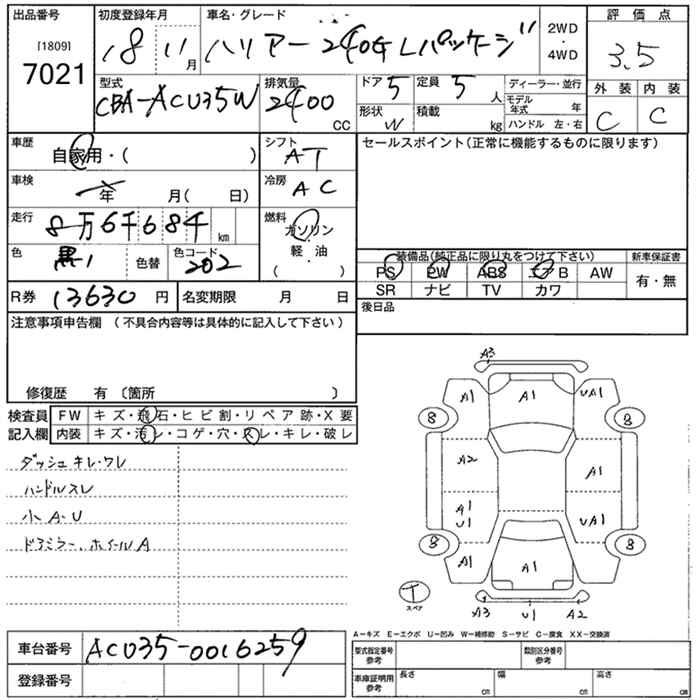 出品番号 初度登録年月 車名・グレード 評価点
[1809] 7021 18 11月 ハリアー 240G Lパッケージ 2WD・4WD 3.5
型式 排気量 ドア 5 定員 5人 ディーラー・並行 外装 内装
CBA-ACU35W 2400CC 形状 W 積載 kg モデル年式 年 C C
ハンドル 左・右
車歴 自家用・( ) シフト AT セールスポイント(正常に機能するものに限ります)
車検 年 月( 日) 冷房 AC
走行 8万6千684km 燃料 ガソリン・軽・油 ( )
色 黒 色替 色コード 202 装備品(純正品に限り丸をつけて下さい) 新車保証書
PS PW ABS エアB AW 有・無
SR ナビ TV カワ
R券 13630円 名変期限 月 日 後日品
注意事項申告欄 (不具合内容等は具体的に記入して下さい)
修復歴 有 〔箇所 〕
検査員 FW キズ・飛石・ヒビ割・リペア跡・X要
記入欄 内装 キズ・汚レ・コゲ・穴・スレ・キレ・破レ
ダッシュキレ・ワレ
ハンドルスレ
小A-U
ドアミラー、ホイールA
A3
A1 A1 UA1
8 8
A2 A1
A1 U1 UA1
8 8
A1 A1 A1
T スペア
A3 U1 A2
A-キズ E-エクボ U-凹み W-補修跡 S-サビ C-腐食 XX-交換済
車台番号 ACU35-0016259
登録番号
型式指定番号 参考 類別区分番号 参考
車庫証明用 参考 長さ cm 幅 cm 高さ cm